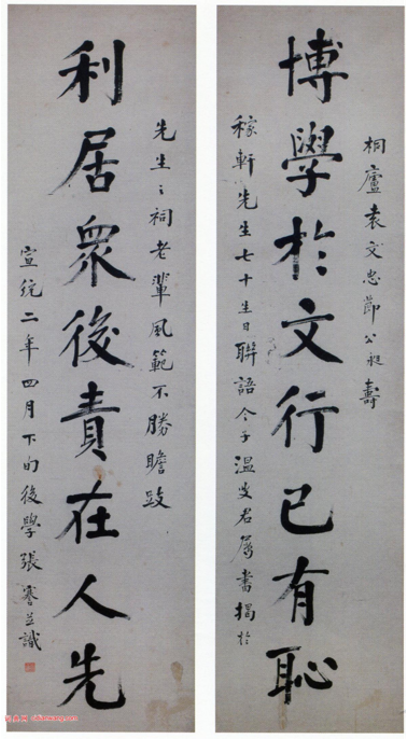 桐廬袁文忠節公昶壽
博學於文行己有恥
稼軒先生七十生日聯語令子温叟君屬書揭於
先生之祠老輩風範不勝瞻跂
利居衆後責在人先
宣統二年四月下旬後學張謇並識